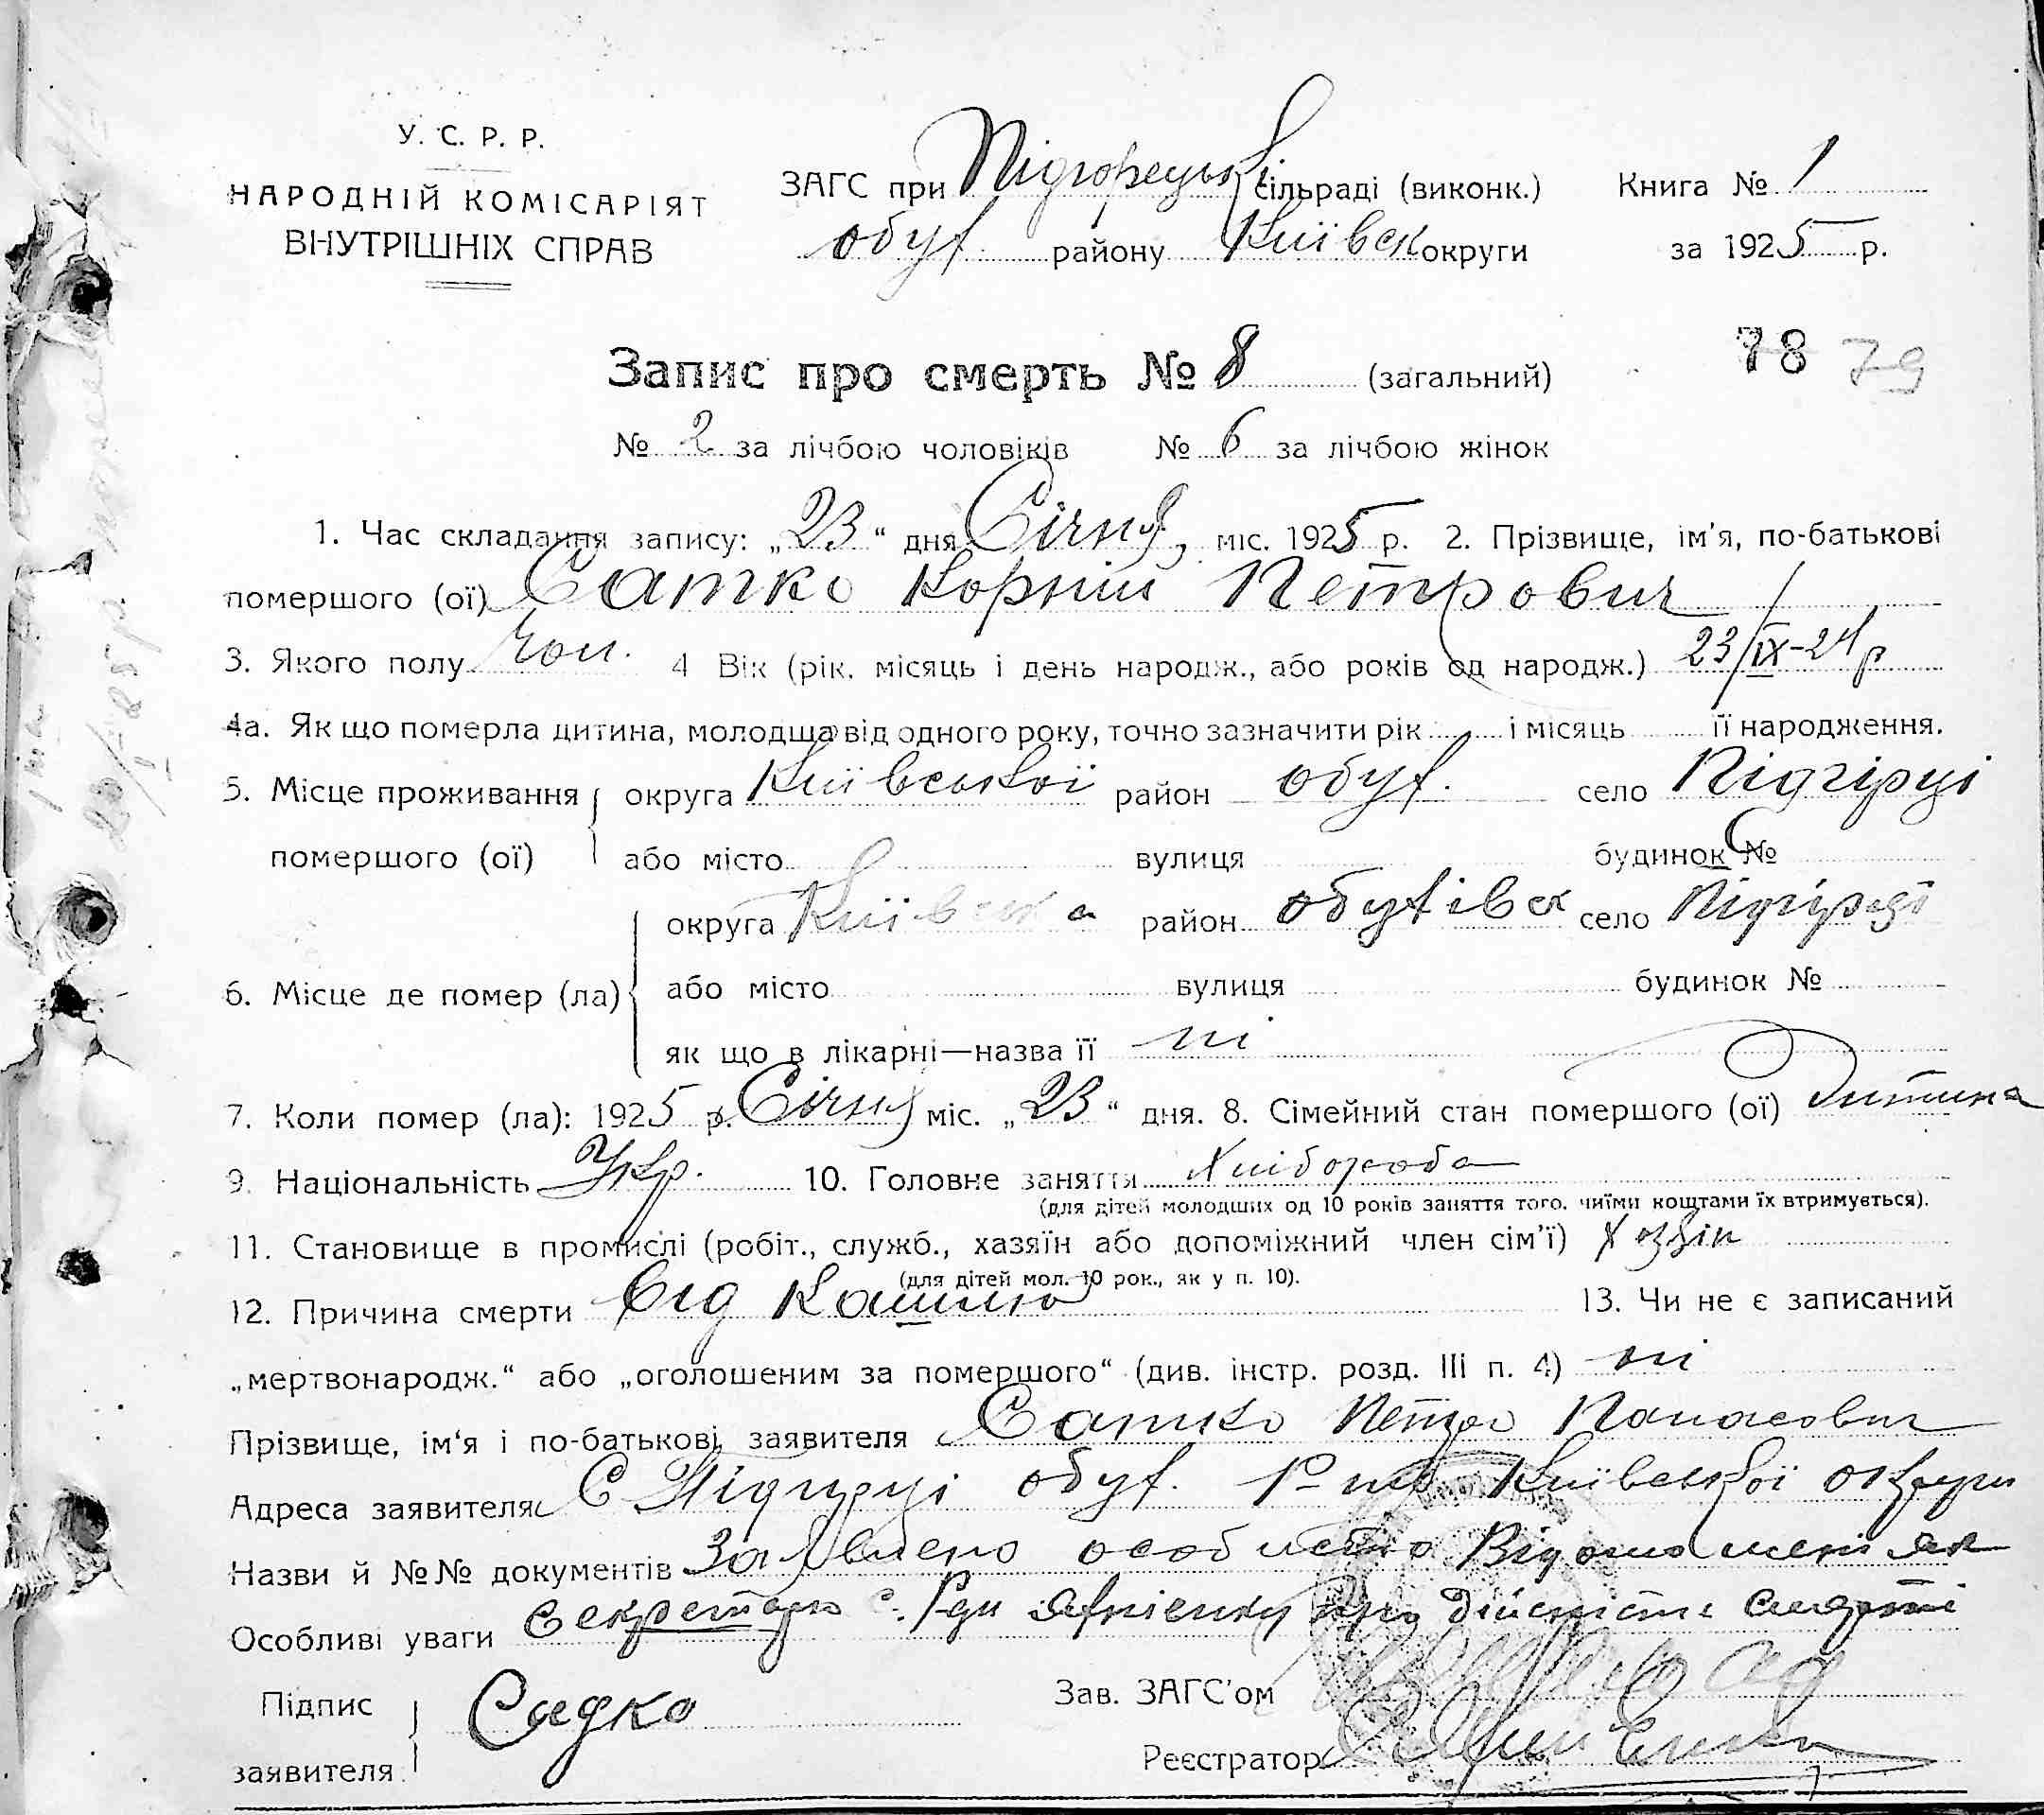 У. С. Р. Р.
НАРОДНІЙ КОМІСАРІЯТ
ВНУТРІШНІХ СПРАВ
ЗАГС при Підгорецькі сільраді (виконк.) Книга № 1
обух району Київськ округи за 1925 р.
Запис про смерть № 8 (загальний) 78 79
№ 2 за лічбою чоловіків № 6 за лічбою жінок
1. Час складання запису: „23“ дня Січня міс. 1925 р. 2. Прізвище, ім'я, по-батькові
помершого (ої) Сатко Корній Петрович
3. Якого полу чол. 4 Вік (рік. місяць і день народж., або років од народж.) 23/IX-24 р
4а. Як що померла дитина, молодша від одного року, точно зазначити рік і місяць її народження.
5. Місце проживання помершого (ої) округа Київської район обух. село Підгірці
або місто вулиця будинок №
6. Місце де помер (ла) округа Київська район обухівськ село Підгірці
або місто вулиця будинок №
як що в лікарні—назва її ні
7. Коли помер (ла): 1925 р. Січня міс. „23“ дня. 8. Сімейний стан помершого (ої) Дитина
9. Національність Укр. 10. Головне заняття Хліборода
(для дітей молодших од 10 років заняття того. чиїми коштами їх втримується).
11. Становище в промислі (робіт., служб., хазяїн або допоміжний член сім'ї) Хозяін
(для дітей мол. 10 рок., як у п. 10).
12. Причина смерти Від Кашлю 13. Чи не є записаний
„мертвонародж.“ або „оголошеним за помершого“ (див. інстр. розд. III п. 4) ні
Прізвище, ім‘я і по-батькові заявителя Сатко Петро Панасович
Адреса заявителя С Підгірці обух. Київської округи
Назви й №№ документів Заявлено особисто Відомо мені як
Особливі уваги секретарю с. Ради про дійсність смерті
Підпис заявителя Садко
Зав. ЗАГС'ом
Реєстратор